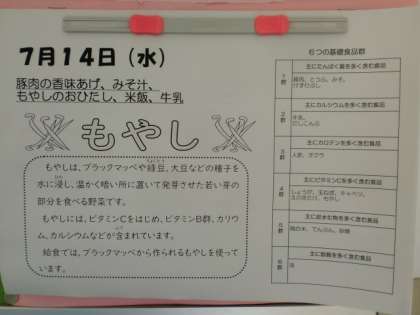 7月14日（水）
豚肉の香味あげ、みそ汁、
もやしのおひたし、米飯、牛乳
もやし
もやしは、ブラックマッペや緑豆、大豆などの種子を
水に浸し、温かく暗い所に置いて発芽させた若い芽の
部分を食べる野菜です。
もやしには、ビタミンCをはじめ、ビタミンB群、カリウ
ム、カルシウムなどが含まれています。
給食では、ブラックマッペから作られるもやしを使って
います。
6つの基礎食品群
主にたんぱく質を多く含む食品
1群
豚肉、とうふ、みそ、
主にカルシウムを多く含む食品
2群
牛乳、
主にカロテンを多く含む食品
3群
主にビタミンCを多く含む食品
4群
しょうが、玉ねぎ、キャベツ、
もやし
主に炭水化物を多く含む食品
5群
でんぷん、砂糖
主に脂質を多く含む食品
6群
油